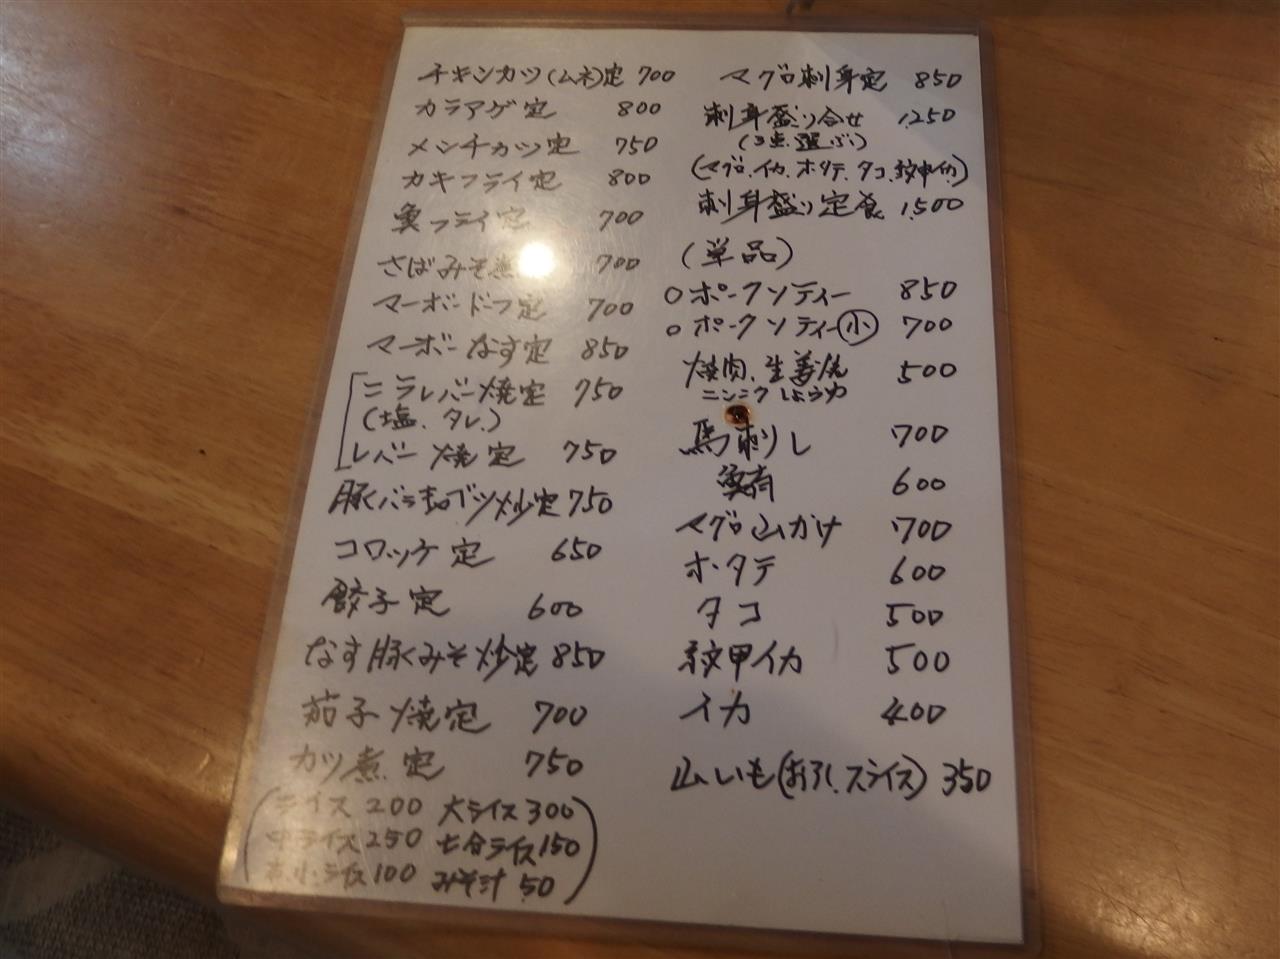 チキンカツ(ムネ)定 700
カラアゲ定 800
メンチカツ定 750
カキフライ定 800
魚フライ定 700
さばみそ煮 700
マーボードーフ定 700
マーボーなす定 850
ニラレバー焼定 750
(塩、タレ)
レバー焼定 750
豚バラキャベツ炒定 750
コロッケ定 650
餃子定 600
なす豚みそ炒定 850
茄子焼定 700
カツ煮定 750
(ライス 200 大ライス 300
中ライス 250 七分ライス 150
小ライス 100 みそ汁 50)
マグロ刺身定 850
刺身盛り合せ 1,250
(3点選ぶ)
(マグロ、イカ、ホタテ、タコ、紋甲イカ)
刺身盛り定食 1,500
(単品)
○ポークソティー 850
○ポークソティー小 700
焼肉、生姜焼 500
ニンニク しょうゆ
馬刺し 700
600
マグロ山かけ 700
ホタテ 600
タコ 500
紋甲イカ 500
イカ 400
山いも(おろし、スライス) 350